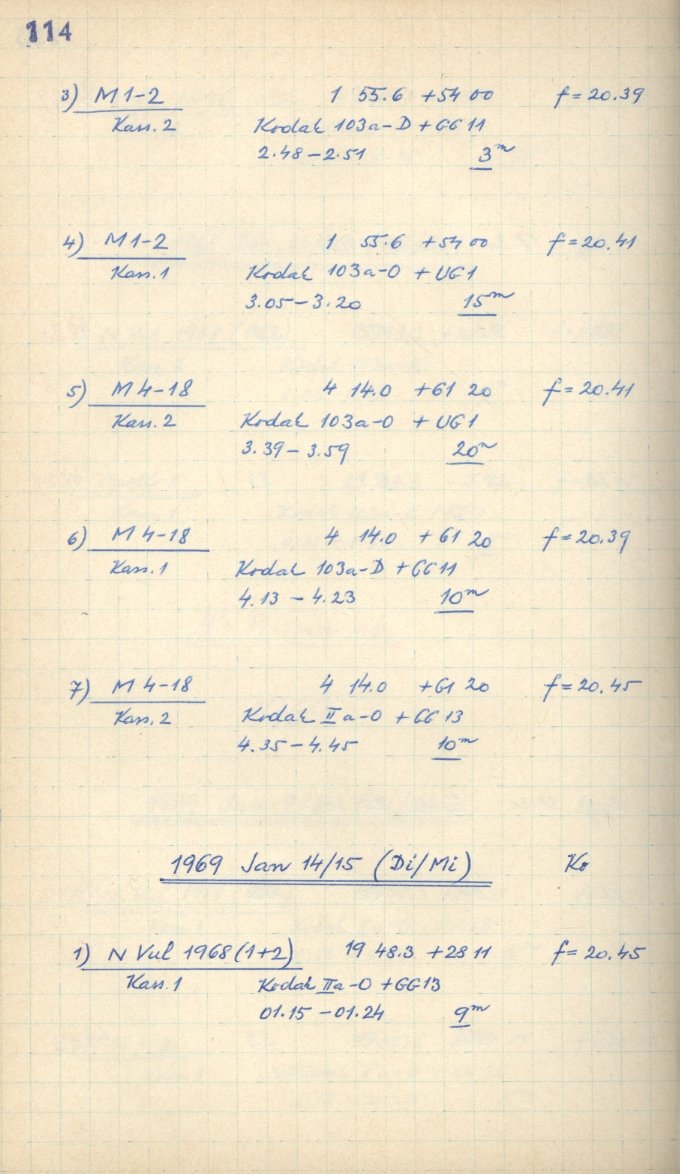 114
3) M 1-2 1 55.6 +54 00 f = 20.39
Kass. 2 Kodak 103a-D + GG 11
2.48 – 2.51 3m
4) M 1-2 1 55.6 +54 00 f = 20.41
Kass. 1 Kodak 103a-O + UG 1
3.05 – 3.20 15m
5) M 4-18 4 14.0 +61 20 f = 20.41
Kass. 2 Kodak 103a-O + UG 1
3.39 – 3.59 20m
6) M 4-18 4 14.0 +61 20 f = 20.39
Kass. 1 Kodak 103a-D + GG 11
4.13 – 4.23 10m
7) M 4-18 4 14.0 +61 20 f = 20.45
Kass. 2 Kodak II a-O + GG 13
4.35 – 4.45 10m
1969 Jan 14/15 (Di/Mi) Ko
1) N Vul 1968 (1+2) 19 48.3 +28 11 f = 20.45
Kass. 1 Kodak IIa-O + GG13
01.15 – 01.24 9m